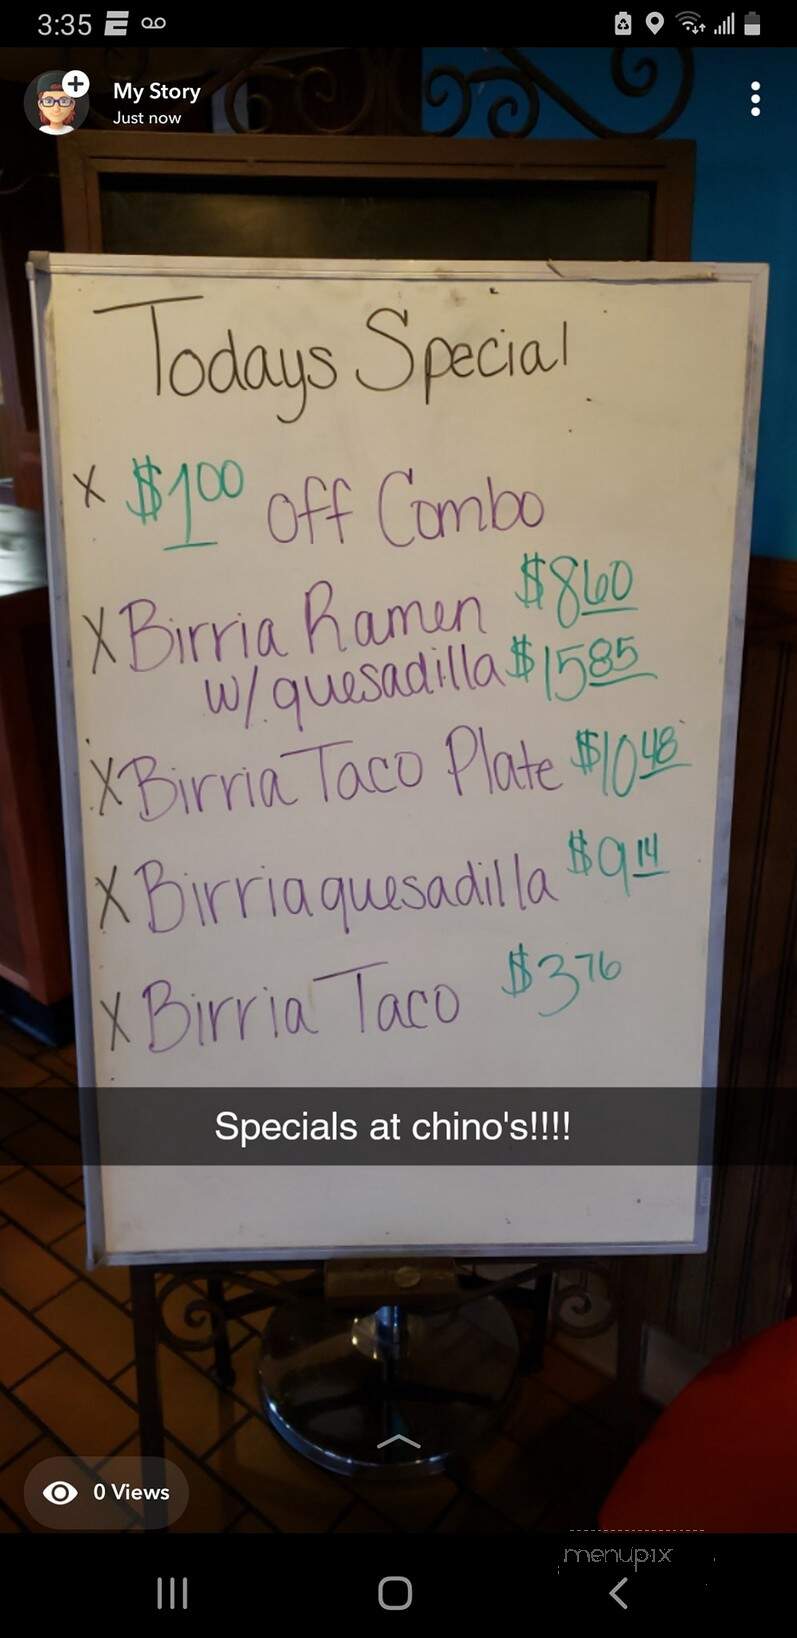 3:35
My Story
Just now
Todays Special
X $1.00 off Combo
X Birria Ramen $8.60
w/ quesadilla $15.85
X Birria Taco Plate $10.48
X Birria quesadilla $9.14
X Birria Taco $3.76
Specials at chino's!!!!
0 Views
menupix